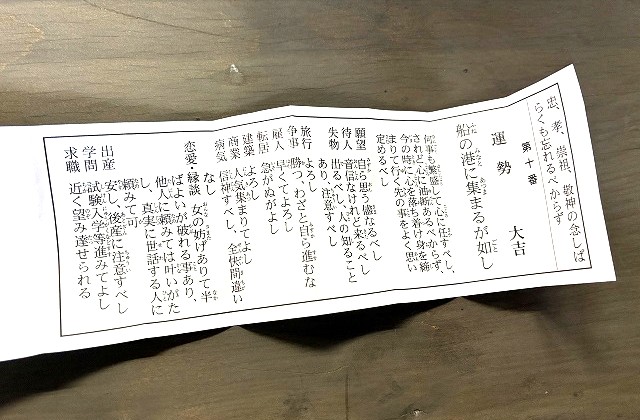 忠、孝、崇祖、敬神の念しば
らくも忘れるべからず
第十番
運勢 大吉
船の港に集まるが如し
何事も繁盛して心に任すべし、
されど心に油断あるべからず、
今の時に心を落ち着け身を締
まりて行く先の事をよく思い
定めるべし
願望 自ら思う儘なるべし
待人 音信なけれど来るべし
失物 出るべし、人の知ること
あり、注意すべし
旅行 よろし
争事 勝つ、わざと自ら進むな
雇人 早くてよろし
転居 急がぬがよし
建築 よろし
商業 人気集まりてよし
病気 信神すべし、全快間違い
なし
恋愛、縁談 女の妨げありて半
ばよいが破れる事あり、
他人に頼みては叶いがた
し、真実に世話する人に
頼みて可
出産 安し、後産に注意すべし
学問 試験入学等進みてよし
求職 近く望み達せられる